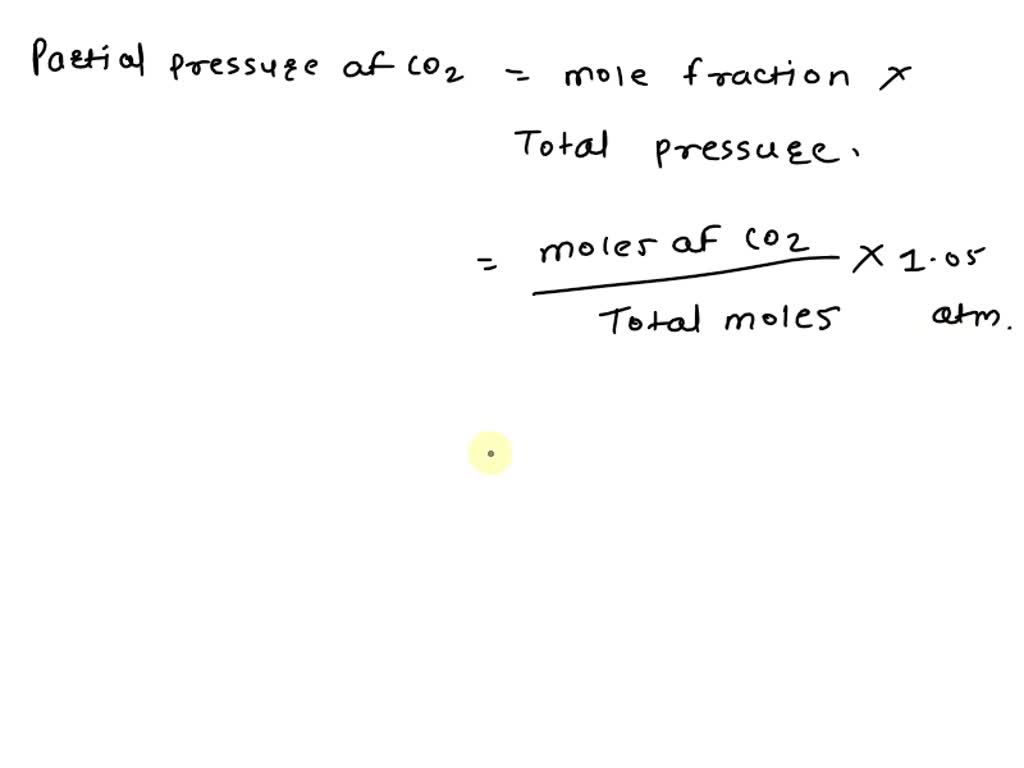 Partial pressure of CO2 = mole fraction ×
Total pressure.
= moles of CO2 / Total moles × 1.05 atm.